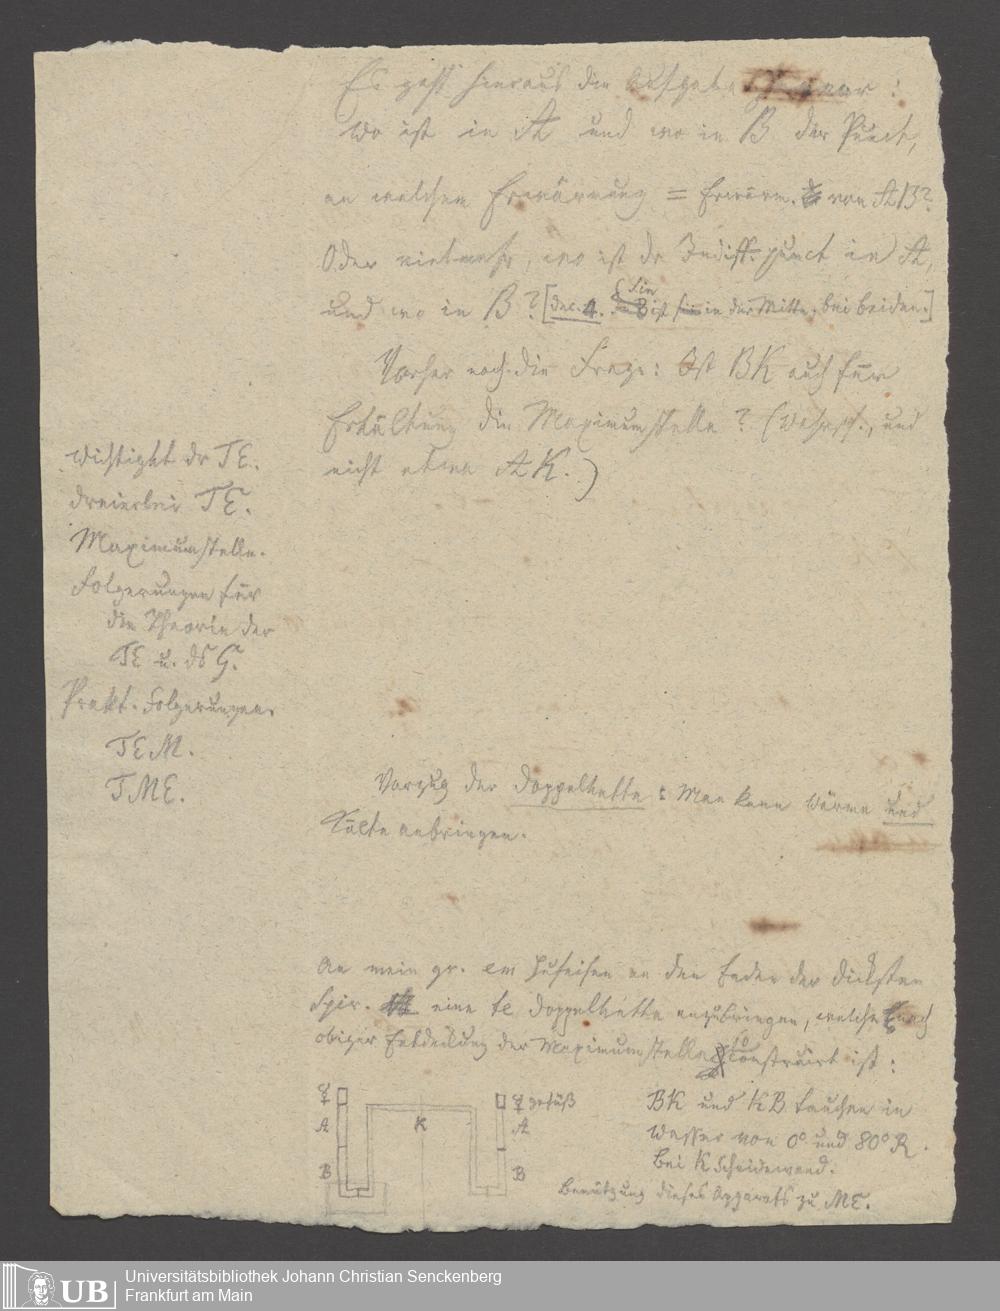 Es geht hieraus die Aufgabe hervor:
Wo ist in A und wo in B der Punct,
an welchem Erwärmung = Erwärm. von AB?
Oder vielmehr, wo ist dr Indiff.punct in A,
und wo in B? [dec. 4. Sin ist in der Mitte bei beiden.]
Vorher noch die Frage: Ist BK auch für
Erkältung die Maximumstelle? (Wahrsch., und
nicht etwa AK.)
Wichtigkt dr TE.
dreierlei TE.
Maximumstelle.
Folgerungen für
die Theorie der
TE u. ds G.
Prakt. Folgerungen.
TEM.
TME.
Vorzug der Doppelkette: Man kann Wärme und
Kälte anbringen.
An mein gr. em Hufeisen an den Enden der dicksten
Spir. eine te Doppelkette anzubringen, welche nach
obiger Entdeckung der Maximumstelle so construirt ist:
☿
A
B
K
☿ gefäß
A
B
BK und KB tauchen in
Wasser von 0° und 80° R.
Bei K Scheidewand.
Benützung dieses Apparats zu ME.
UB
Universitätsbibliothek Johann Christian Senckenberg
Frankfurt am Main